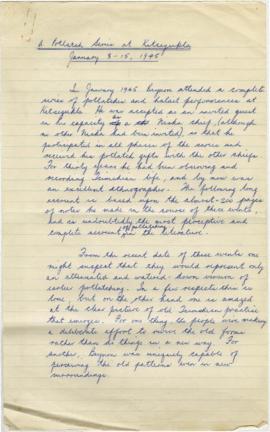 A Potlatch Series at Kitsegukla
January 8-15, 1945
In January 1945 Beynon attended a complete
series of potlatches and halait performances at
Kitsegukla. He was accepted as an invited guest
in his capacity as a Niska chief, (although
no other Niska had been invited) so that he
participated in all phases of the series and
received his potlatch gifts with the other chiefs.
For thirty years he had been observing and
recording Tsimshian life, and by now was
an excellent ethnographer. The following long
account is based upon the almost-200 pages
of notes he made in the course of these events,
and is undoubtedly the most perceptive and
complete account of potlatching in the literature.
From the recent date of these events one
might suspect that they would represent only
an attenuated and watered-down version of
earlier potlatching. In a few respects this is
true, but on the other hand one is amazed
at the clear picture of old Tsimshian practice
that emerges. For one thing, the people were making
a deliberate effort to revive the old forms
rather than do things in a new way. For
another, Beynon was uniquely capable of
perceiving the old patterns even in new
surroundings.